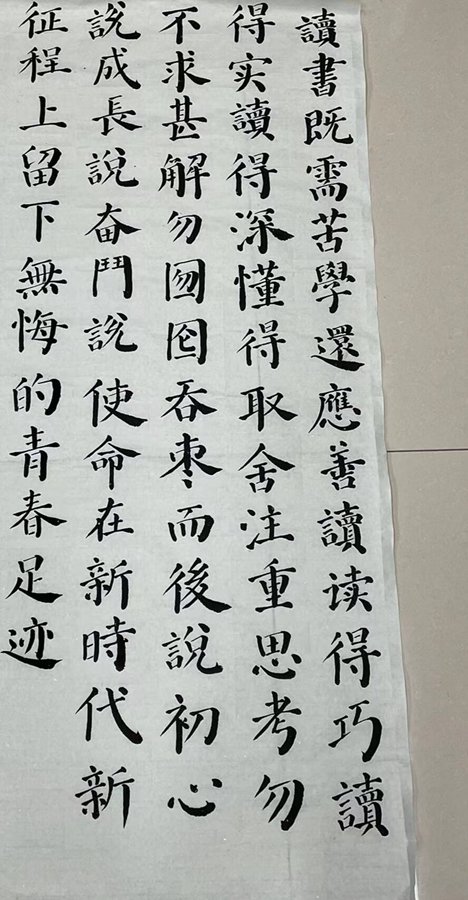 讀書既需苦學還應善讀读得巧讀
得实讀得深懂得取舍注重思考勿
不求甚解勿囫囵吞枣而後說初心
說成長說奋鬥說使命在新時代新
征程上留下無悔的青春足迹